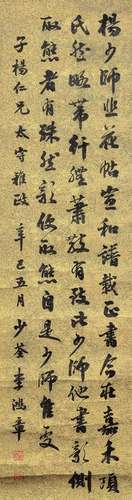 楊少師韭花帖宣和譜載正書今在嘉禾項
氏然略帶行體蕭散有致比少師他書欹側
取態者有殊然欹側取態自是少師佳處
子楊仁兄太守雅政 辛巳五月 少荃李鴻章